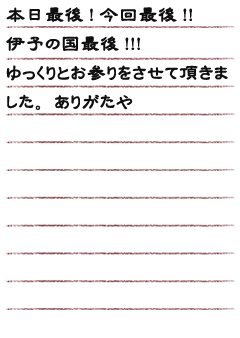 本日最後！今回最後!!
伊予の国最後!!!
ゆっくりとお参りをさせて頂きま
した。 ありがたや